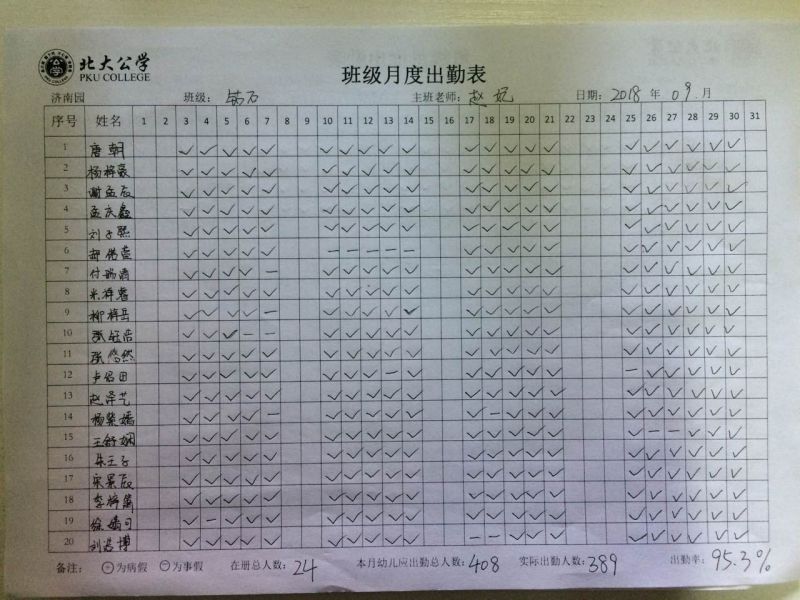 北大公学
PKU COLLEGE
班级月度出勤表
济南园 班级: 钻石 主班老师: 赵妮 日期: 2018 年 09 月
序号 姓名 1 2 3 4 5 6 7 8 9 10 11 12 13 14 15 16 17 18 19 20 21 22 23 24 25 26 27 28 29 30 31
1 唐朝 ✓ ✓ ✓ ✓ ✓ ✓ ✓ ✓ ✓ ✓ ✓ ✓ ✓ ✓ ✓ ✓ ✓ ✓ ✓ ✓ ✓
2 杨梓豪 ✓ ✓ ✓ ✓ ✓ ✓ ✓ ✓ ✓ ✓ ✓ ✓ ✓ ✓ ✓ ✓ ✓ ✓ ✓ ✓ ✓
3 谢孟辰 ✓ ✓ ✓ ✓ ✓ ✓ ✓ ✓ ✓ ✓ ✓ ✓ ✓ ✓ ✓ ✓ ✓ ✓ ✓ ✓ ✓
4 孟庆鑫 ✓ ✓ ✓ ✓ ✓ ✓ ✓ ✓ ✓ ✓ ✓ ✓ ✓ ✓ ✓ ✓ ✓ ✓ ✓ ✓ ✓
5 刘子熙 ✓ ✓ ✓ ✓ ✓ ✓ ✓ ✓ ✓ ✓ ✓ ✓ ✓ ✓ ✓ ✓ ✓ ✓ ✓ ✓ ✓
6 ✓ ✓ ✓ ✓ ✓ － － － － － ✓ ✓ ✓ ✓ ✓ ✓ ✓ ✓ ✓ ✓ ✓
7 ✓ ✓ ✓ ✓ － ✓ ✓ ✓ ✓ ✓ ✓ ✓ ✓ ✓ ✓ ✓ ✓ ✓ ✓ ✓ ✓
8 ✓ ✓ ✓ ✓ ✓ ✓ ✓ ✓ ✓ ✓ ✓ ✓ ✓ ✓ ✓ ✓ ✓ ✓ ✓ ✓ ✓
9 柳梓岳 ✓ ✓ ✓ ✓ － ✓ ✓ ✓ ✓ ✓ ✓ ✓ ✓ ✓ ✓ ✓ ✓ ✓ ✓ ✓ ✓
10 ✓ ✓ ✓ － － ✓ ✓ ✓ ✓ ✓ ✓ ✓ ✓ ✓ ✓ ✓ ✓ ✓ ✓ ✓ ✓
11 张皓然 ✓ ✓ ✓ ✓ ✓ ✓ ✓ ✓ ✓ ✓ ✓ ✓ ✓ ✓ ✓ ✓ ✓ ✓ ✓ ✓ ✓
12 ✓ ✓ ✓ ✓ ✓ ✓ ✓ ✓ － ✓ ✓ ✓ ✓ ✓ ✓ － ✓ ✓ ✓ ✓ ✓
13 赵泽艺 ✓ ✓ ✓ ✓ ✓ ✓ ✓ ✓ ✓ ✓ ✓ ✓ ✓ ✓ ✓ ✓ ✓ ✓ ✓ ✓ ✓
14 杨紫嫣 ✓ ✓ ✓ ✓ － ✓ ✓ ✓ ✓ ✓ ✓ － ✓ ✓ ✓ ✓ ✓ ✓ ✓ ✓ ✓
15 王舒娴 ✓ ✓ ✓ ✓ ✓ ✓ ✓ ✓ ✓ ✓ ✓ ✓ ✓ ✓ ✓ ✓ － － ✓ ✓ ✓
16 朱王子 ✓ ✓ ✓ ✓ ✓ ✓ ✓ ✓ ✓ ✓ ✓ ✓ ✓ ✓ ✓ ✓ ✓ ✓ ✓ ✓ ✓
17 ✓ ✓ ✓ ✓ ✓ ✓ ✓ ✓ ✓ ✓ ✓ ✓ ✓ ✓ ✓ ✓ ✓ ✓ ✓ ✓ ✓
18 ✓ ✓ ✓ ✓ ✓ ✓ ✓ ✓ ✓ ✓ ✓ ✓ ✓ ✓ ✓ ✓ ✓ ✓ ✓ ✓ ✓
19 ✓ － ✓ ✓ ✓ ✓ ✓ ✓ ✓ ✓ ✓ ✓ ✓ ✓ ✓ ✓ ✓ ✓ ✓ ✓ ✓
20 ✓ ✓ ✓ ✓ ✓ ✓ ✓ ✓ ✓ ✓ － － ✓ ✓ ✓ ✓ ✓ ✓ ✓ ✓ ✓
备注: ⊕为病假 ⊖为事假 在册总人数: 24 本月幼儿应出勤总人数: 408 实际出勤人数: 389 出勤率: 95.3%